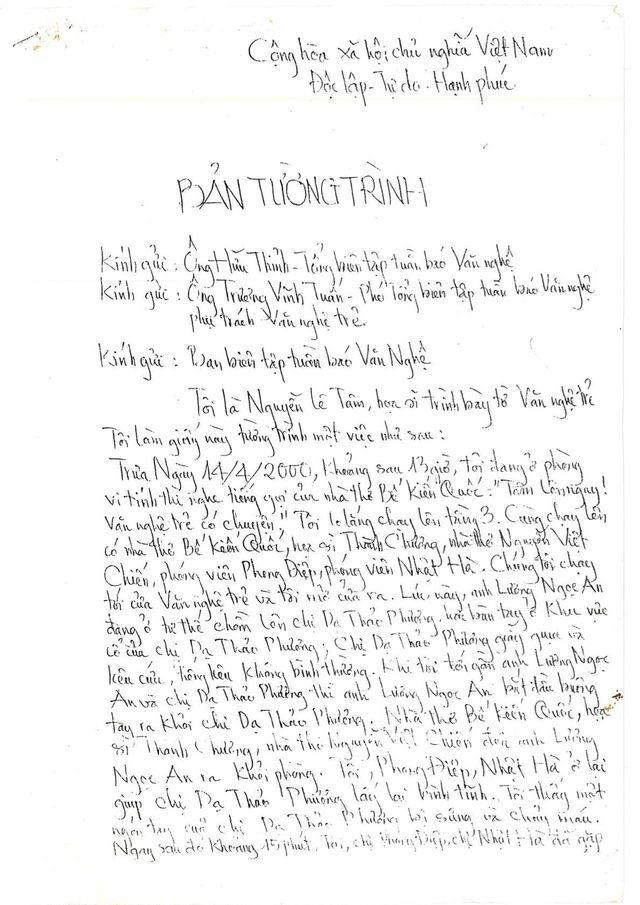 Cộng hòa xã hội chủ nghĩa Việt Nam
Độc lập - Tự do - Hạnh phúc
BẢN TƯỜNG TRÌNH
Kính gửi : Ông Hữu Thỉnh - Tổng biên tập tuần báo Văn nghệ
Kính gửi : Ông Trương Vĩnh Tuấn - Phó Tổng biên tập tuần báo Văn nghệ
phụ trách Văn nghệ trẻ.
Kính gửi : Ban biên tập tuần báo Văn Nghệ
Tôi là Nguyễn Lê Tâm, họa sĩ trình bày tờ Văn nghệ trẻ
Tôi làm giấy này tường trình một việc như sau :
Trưa Ngày 14/4/2000, khoảng sau 13 giờ, tôi đang ở phòng
vi tính thì nghe tiếng gọi của nhà thơ Bế Kiến Quốc : "Tâm lên ngay!
Văn nghệ trẻ có chuyện," Tôi lo lắng chạy lên tầng 3. Cùng chạy lên
có nhà thơ Bế Kiến Quốc, họa sĩ Thành Chương, nhà thơ Nguyễn Việt
Chiến, phóng viên Phong Điệp, phóng viên Nhật Hà. Chúng tôi chạy
tới cửa Văn nghệ trẻ và tôi mở cửa ra. Lúc này, anh Lương Ngọc An
đang ở tư thế chồm lên chị Dạ Thảo Phương, hai bàn tay ở khu vực
cổ của chị Dạ Thảo Phương ; Chị Dạ Thảo Phương giãy giụa và
kêu cứu, tiếng kêu không bình thường. Khi tôi tới gần anh Lương Ngọc
An và chị Dạ Thảo Phương thì anh Lương Ngọc An bắt đầu buông
tay ra khỏi chị Dạ Thảo Phương. Nhà thơ Bế Kiến Quốc, họa
sĩ Thành Chương, nhà thơ Nguyễn Việt Chiến đưa anh Lương
Ngọc An ra khỏi phòng. Tôi, Phong Điệp, Nhật Hà ở lại
giúp chị Dạ Thảo Phương lấy lại bình tĩnh. Tôi thấy một
ngón tay của chị Dạ Thảo Phương bị sưng và chảy máu.
Ngay sau đó khoảng 15 phút, Tôi, chị Phong Điệp, chị Nhật Hà đã gặp